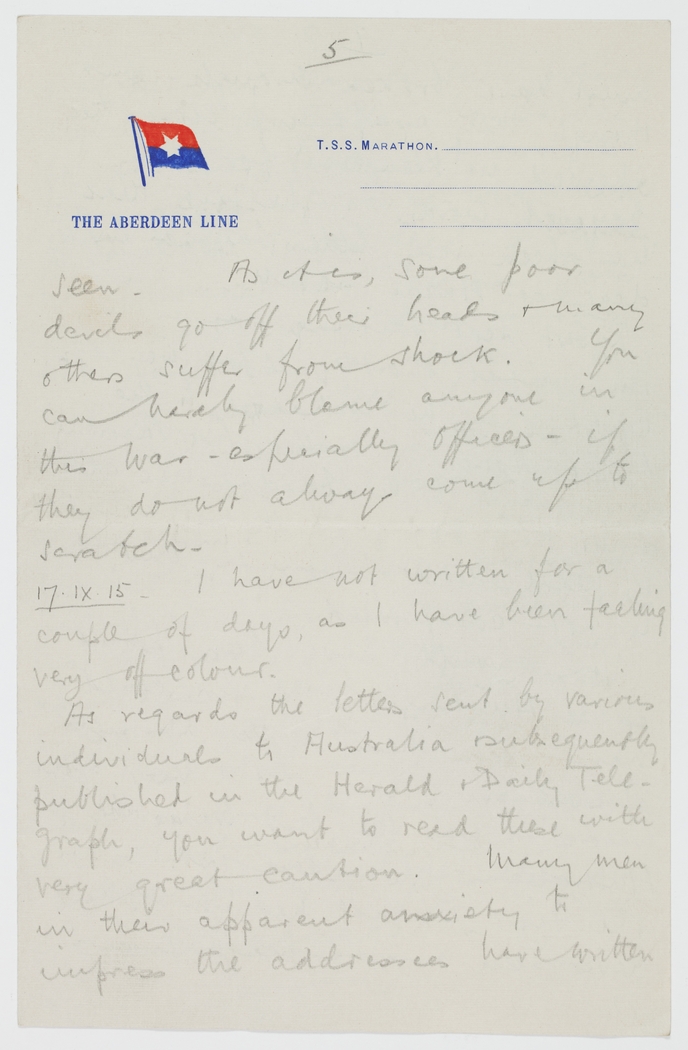 5
T.S.S. MARATHON.
THE ABERDEEN LINE
seen - As it is, some poor
devils go off their heads & many
others suffer from shock. You
can hardly blame anyone in
this war - especially officers - if
they do not always come up to
scratch -
17.IX.15 - I have not written for a
couple of days, as I have been feeling
very off colour.
As regards the letters sent by various
individuals to Australia & subsequently
published in the Herald & Daily Tele-
graph, you want to read these with
very great caution. Many men
in their apparent anxiety to
impress the addressees have written